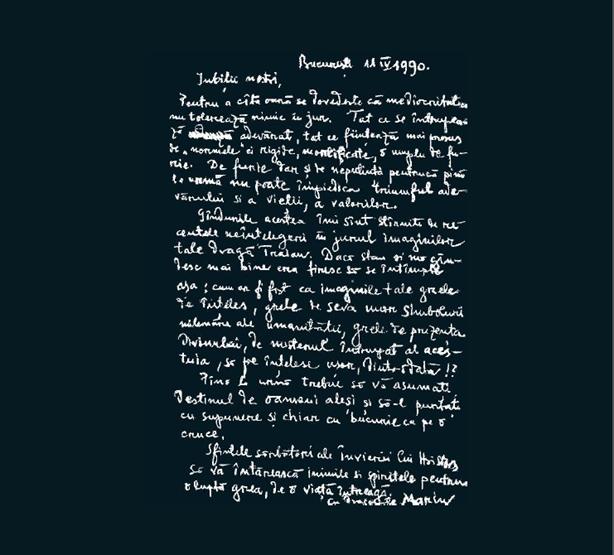 București 11 IV 1990.
Iubiții noștri,
Pentru a câta oară se dovedește că mediocritatea
nu tolerează nimic în jur. Tot ce se întrupea-
ză adevărat, tot ce ființează mai presus
de „normele" ei rigide, mortificate, o umple de fu-
rie. De furie dar și de neputință pentru că pînă
la urmă nu poate împiedica triumful ade-
vărului și a vieții, a valorilor.
Gîndurile acestea îmi sînt stîrnite de re-
centele neînțelegeri în jurul imaginilor
tale dragă Traian. Dacă stau și mă gîn-
desc mai bine era firesc să se întîmple
așa; cum ar fi fost ca imaginile tale grele
de înțeles, grele de seva marilor simboluri
ale umanității, grele de prezența
Divinului, de misterul întrupat al aces-
tuia, să fie înțelese ușor, dintr-odată!?
Pînă la urmă trebuie să vă asumați
Destinul de oameni aleși și să-l purtați
cu supunere și chiar cu bucurie ca pe o
cruce.
Sfintele sărbători ale Învierii lui Hristos
să vă întărească inimile și spiritele pentru
o luptă grea, de o viață întreagă.
cu dragoste Marin